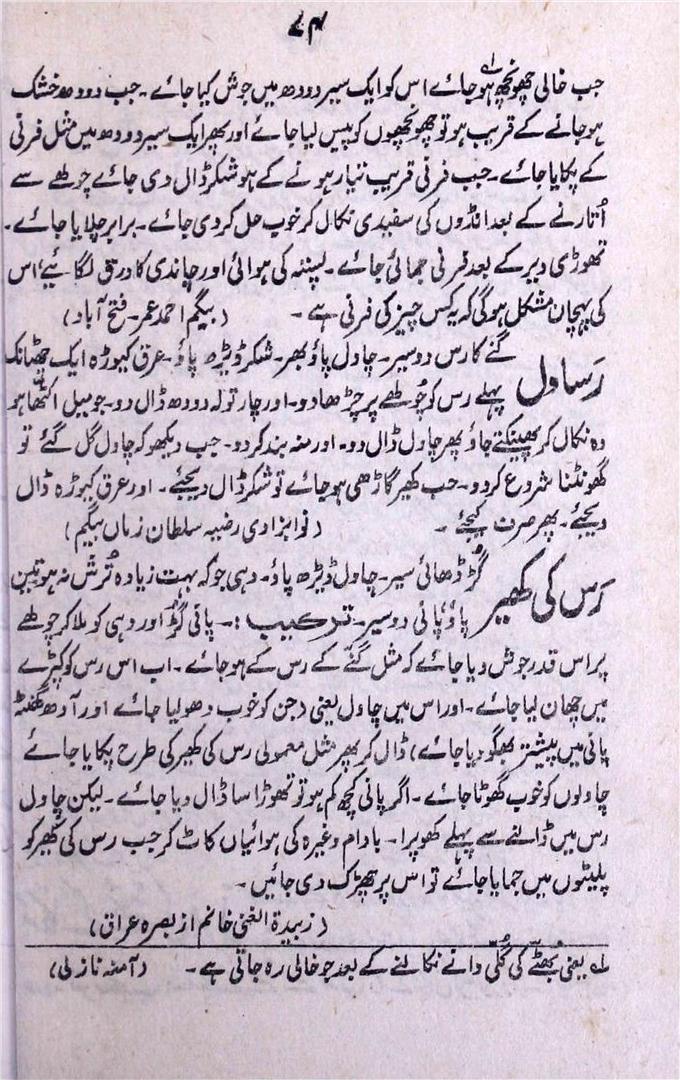 ۷۴
جب خالی چھونچھ ہوجائے اس کو ایک سیر دودھ میں جوش کیا جائے۔ جب دودھ خشک
ہوجانے کے قریب ہو تو چھونچھوں کو پیس لیا جائے اور پھر ایک سیر دودھ میں مثل فرنی
کے پکایا جائے۔ جب فرنی قریب تیار ہونے کے ہو شکر ڈال دی جائے چولھے سے
اُتارنے کے بعد انڈوں کی سفیدی نکال کر خوب حل کردی جائے۔ برابر چلایا جائے۔
تھوڑی دیر کے بعد فرنی جمائی جائے۔ پستہ کی ہوائی اور چاندی کا ورق لگائیے، اس
کی پہچان مشکل ہوگی کہ یہ کس چیز کی فرنی ہے۔ (بیگم احمد عمر۔ فتح آباد)
رَساول گنے کا رس دوسیر۔ چاول پاؤ بھر۔ شکر ڈیڑھ پاؤ۔ عرق کیوڑہ ایک چھٹانک
پہلے رس کو چُولھے پر چڑھادو۔ اور چار تولہ دودھ ڈال دو۔ جو میل اکٹھا ہو
وہ نکال کر پھینکتے جاؤ پھر چاول ڈال دو۔ اور منہ بند کردو۔ جب دیکھو کہ چاول گل گئے تو
گھونٹنا شروع کردو۔ جب کھیر گاڑھی ہوجائے تو شکر ڈال دیجئے۔ اور عرق کیوڑہ ڈال
دیجئے۔ پھر صرف کیجئے۔ (نوابزادی رضیہ سلطان زماں بیگم)
رَس کی کھیر گُڑ ڈھائی سیر۔ چاول ڈیڑھ پاؤ۔ دہی جو کہ بہت زیادہ تُرش نہ ہو تین
پاؤ، پانی دوسیر۔ ترکیب:۔ پانی گڑ اور دہی کو ملا کر چولھے
پر اس قدر جوش دیا جائے کہ مثل گنے کے رس کے ہوجائے۔ اب اس رس کو کپڑے
میں چھان لیا جائے۔ اور اس میں چاول یعنی (جن کو خوب دھولیا جائے اور آدھ گھنٹہ
پانی میں پیشتر بھگو دیا جائے) ڈال کر پھر مثل معمولی رس کی کھیر کی طرح پکایا جائے
چاولوں کو خوب گھوٹا جائے۔ اگر پانی کچھ کم ہو تو تھوڑا سا ڈال دیا جائے۔ لیکن چاول
رس میں ڈالنے سے پہلے کھوپرا۔ بادام وغیرہ کی ہوائیاں کاٹ کر جب رس کی کھیر کو
پلیٹوں میں جمایا جائے تو اس پر چھڑک دی جائیں۔
(زبیدۃ الغنی خانم از بصرہ عراق)
لہ یعنی بُھٹّے کی گُلّی دانے نکالنے کے بعد جو خالی رہ جاتی ہے۔ (آمنہ نازلی)